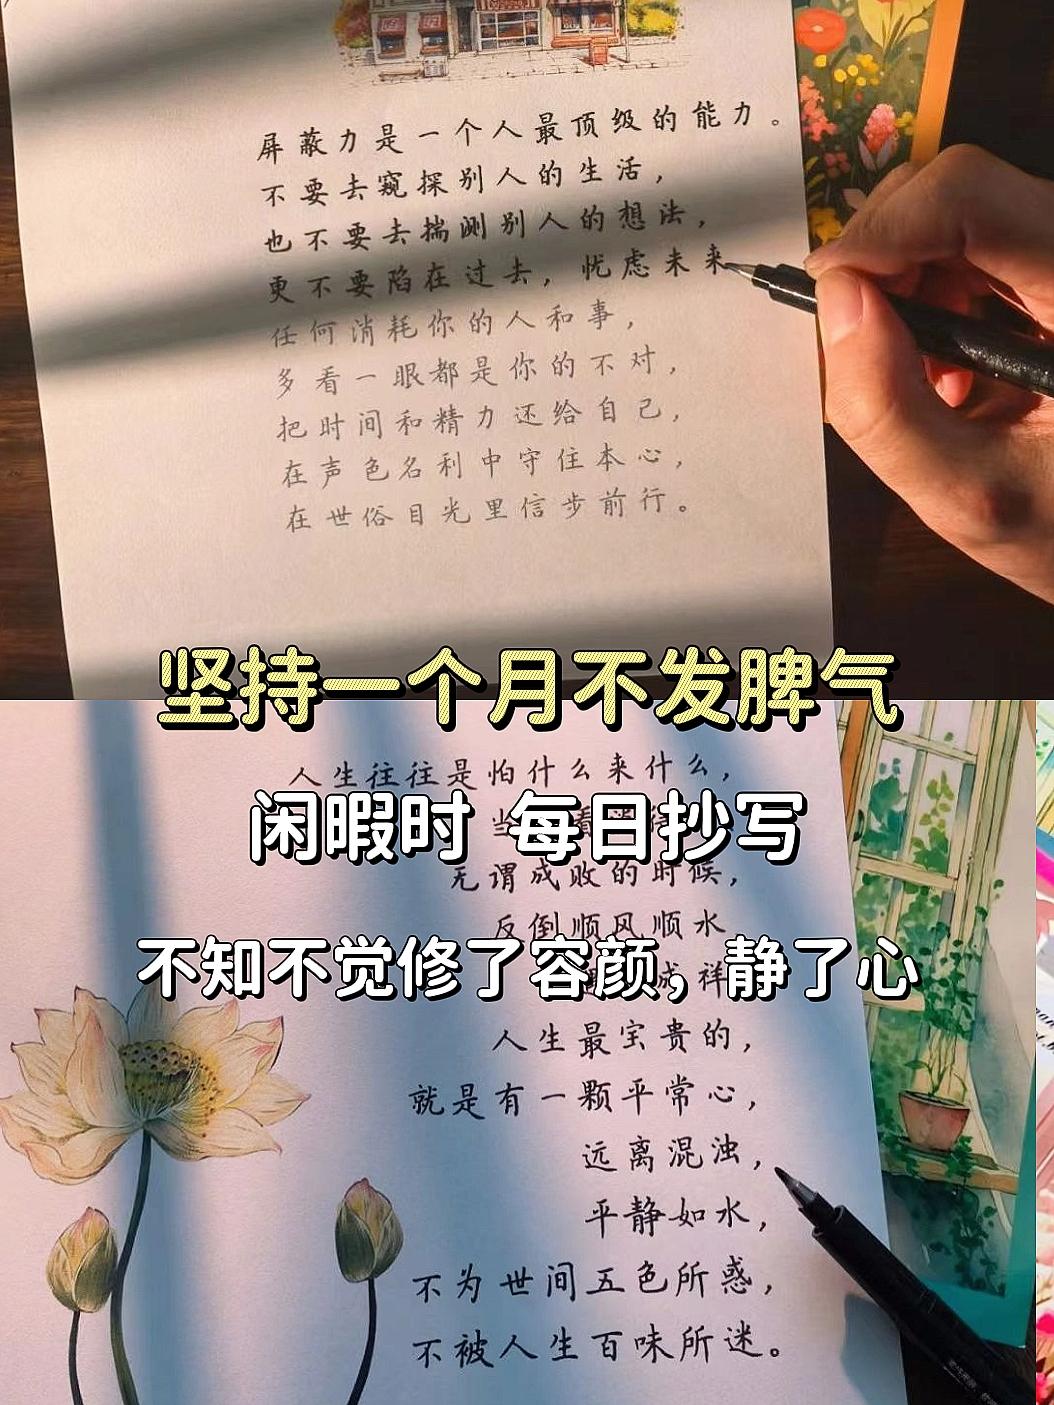 屏蔽力是一个人最顶级的能力。
不要去窥探别人的生活，
也不要去揣测别人的想法，
更不要陷在过去，忧虑未来
任何消耗你的人和事，
多看一眼都是你的不对，
把时间和精力还给自己，
在声色名利中守住本心，
在世俗目光里信步前行。
坚持一个月不发脾气
人生往往是怕什么来什么，
闲暇时 每日抄写
当
无谓成败的时候，
反倒顺风顺水
不知不觉修了容颜，静了心
成祥
人生最宝贵的，
就是有一颗平常心，
远离混浊，
平静如水，
不为世间五色所惑，
不被人生百味所迷。